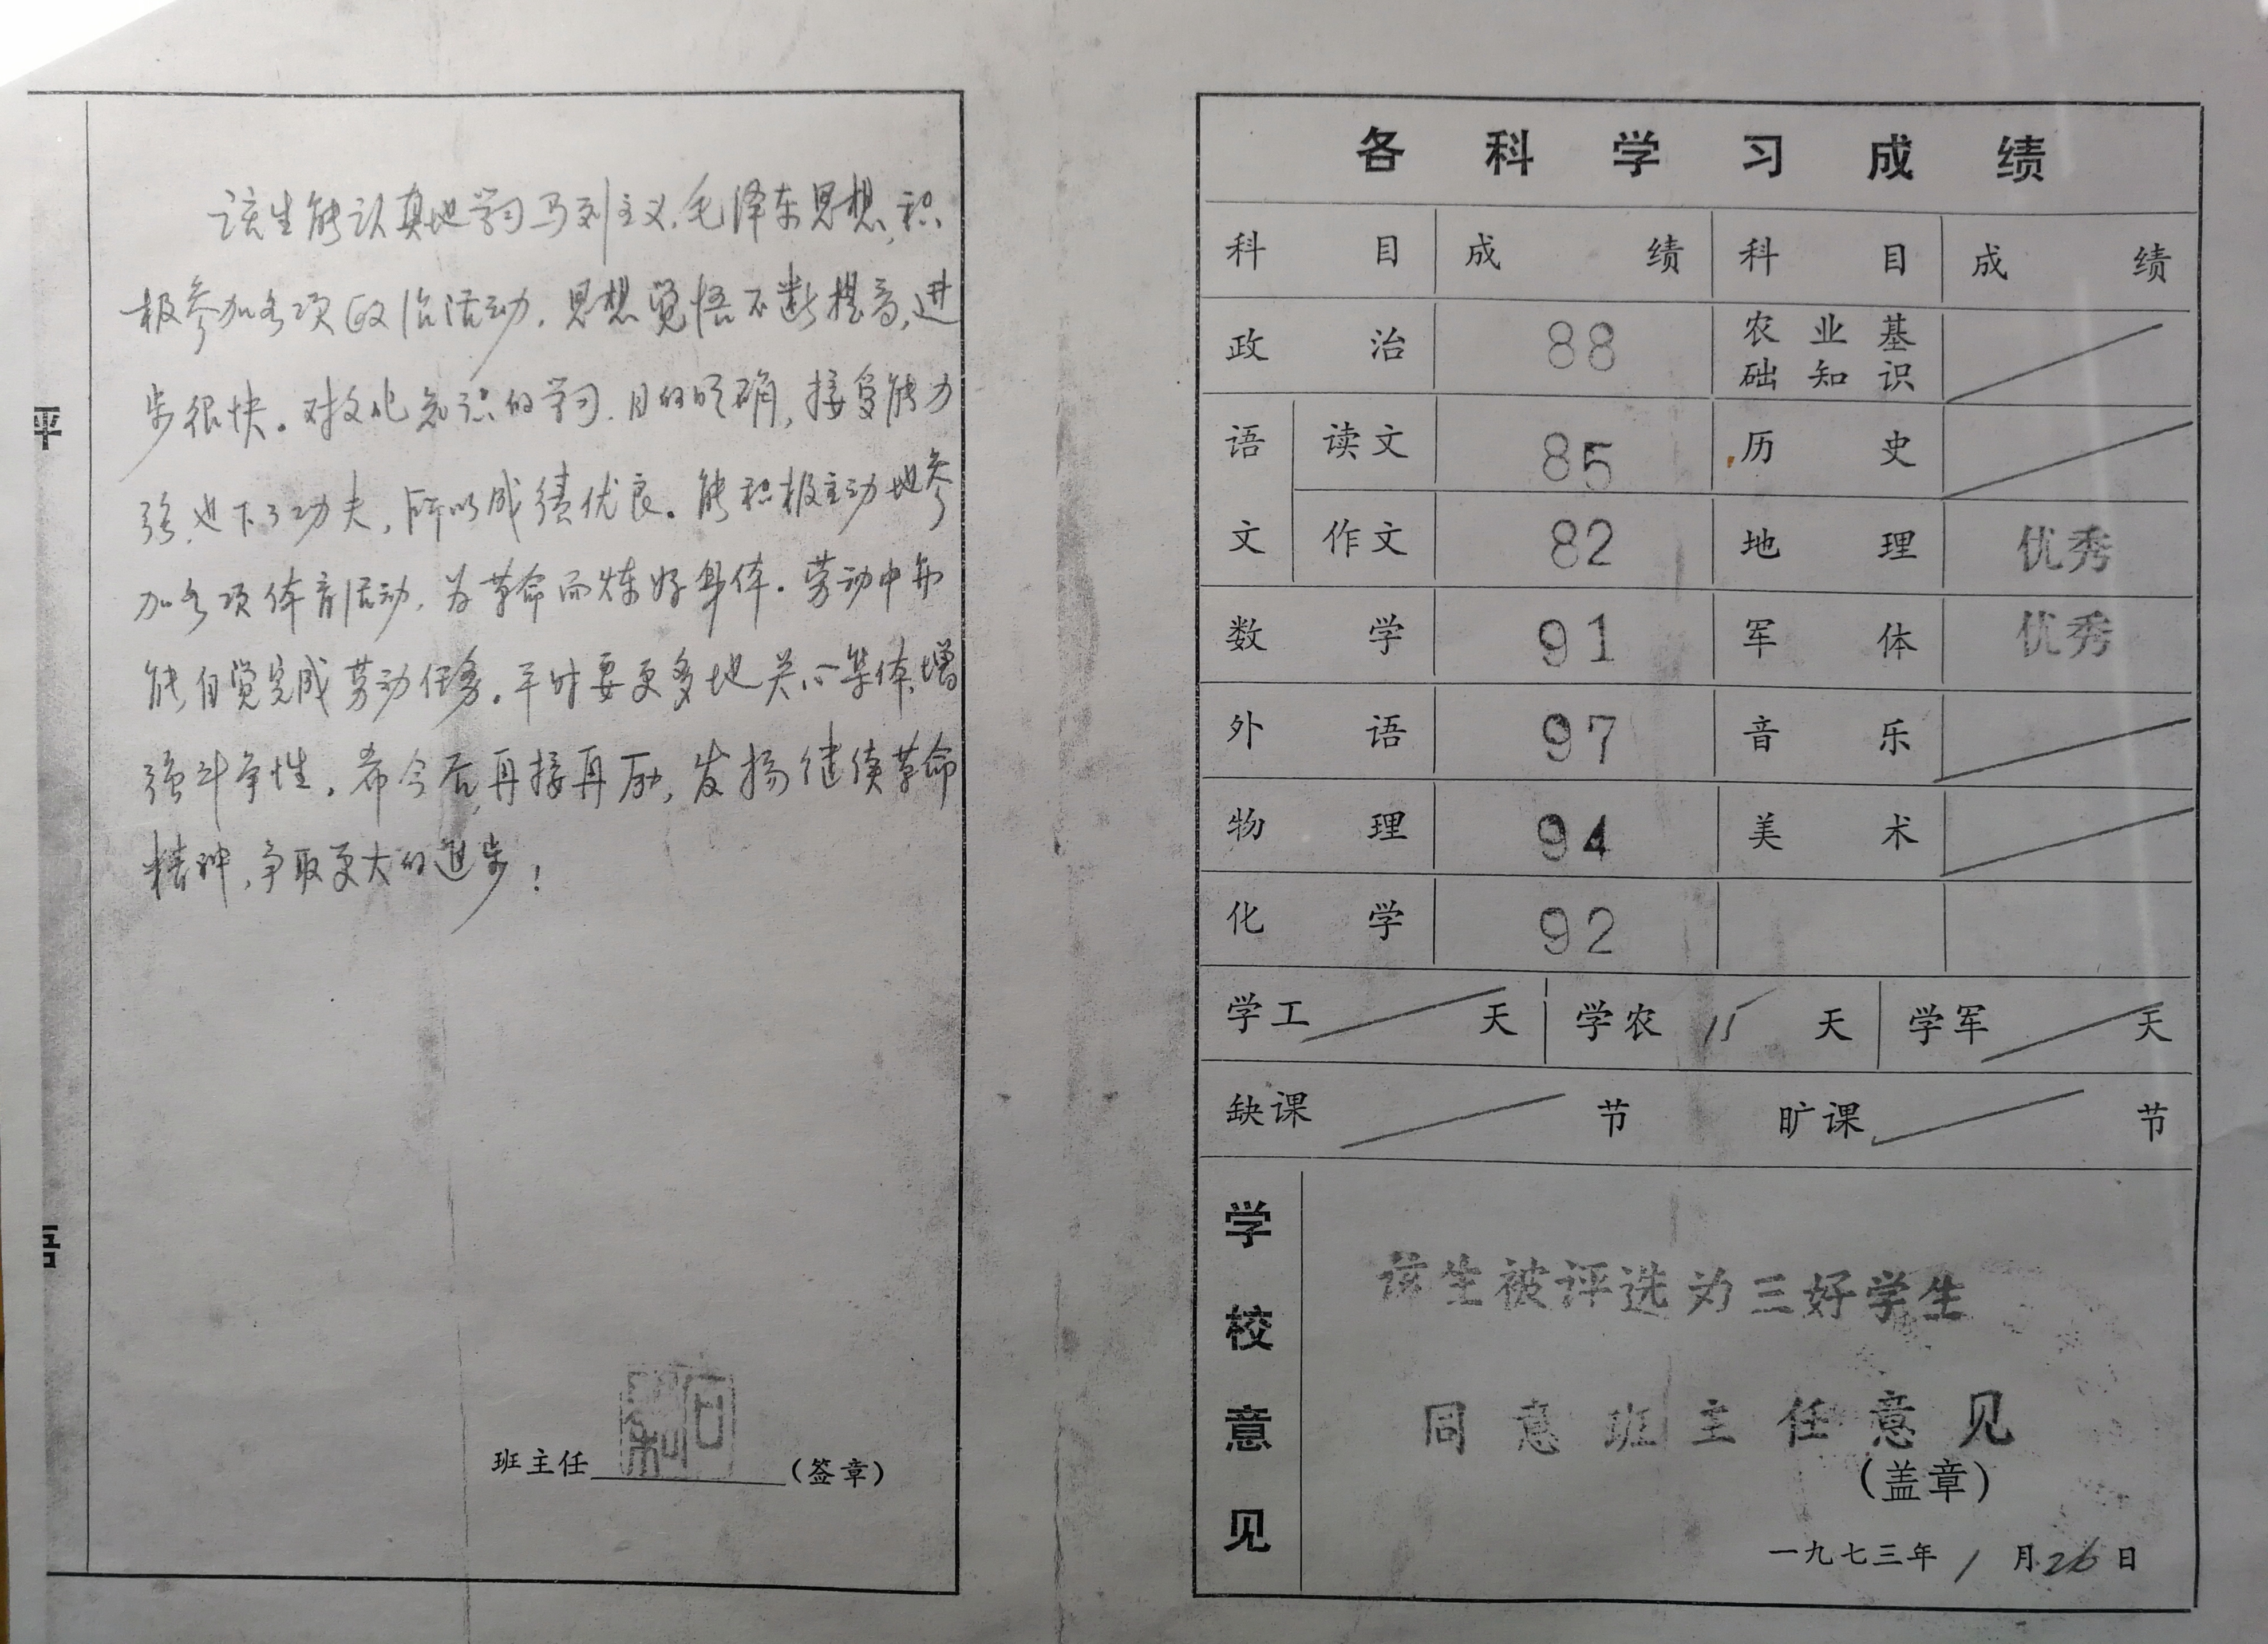 评语
该生能认真地学习马列主义、毛泽东思想,积
极参加各项政治活动,思想觉悟不断提高,进
步很快。对文化知识的学习,目的明确,接受能力
强,也下了功夫,所以成绩优良。能积极主动地参
加各项体育活动,为革命而炼好身体。劳动中亦
能自觉完成劳动任务。平时要更多地关心集体,增
强斗争性。希今后再接再励,发扬继续革命
精神,争取更大的进步!
班主任 (签章)
各科学习成绩
科目 成绩 科目 成绩
政治 88 农业基础知识
语文 读文 85 历史
作文 82 地理 优秀
数学 91 军体 优秀
外语 97 音乐
物理 94 美术
化学 92
学工 天 学农 15 天 学军 天
缺课 节 旷课 节
学校意见
该生被评选为三好学生
同意班主任意见
(盖章)
一九七三年1月26日